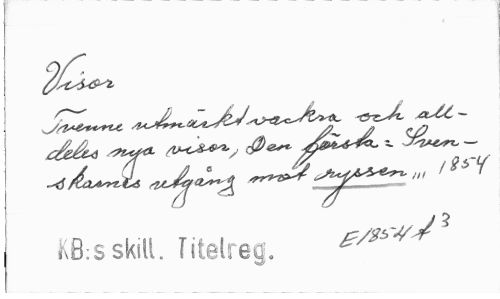 Visor
Tvenne utmärkt vackra och all-
deles nya visor, Den första = Sven-
skarnes utgång mot ryssen ... 1854
E1854 f 3
KB:s skill. Titelreg.